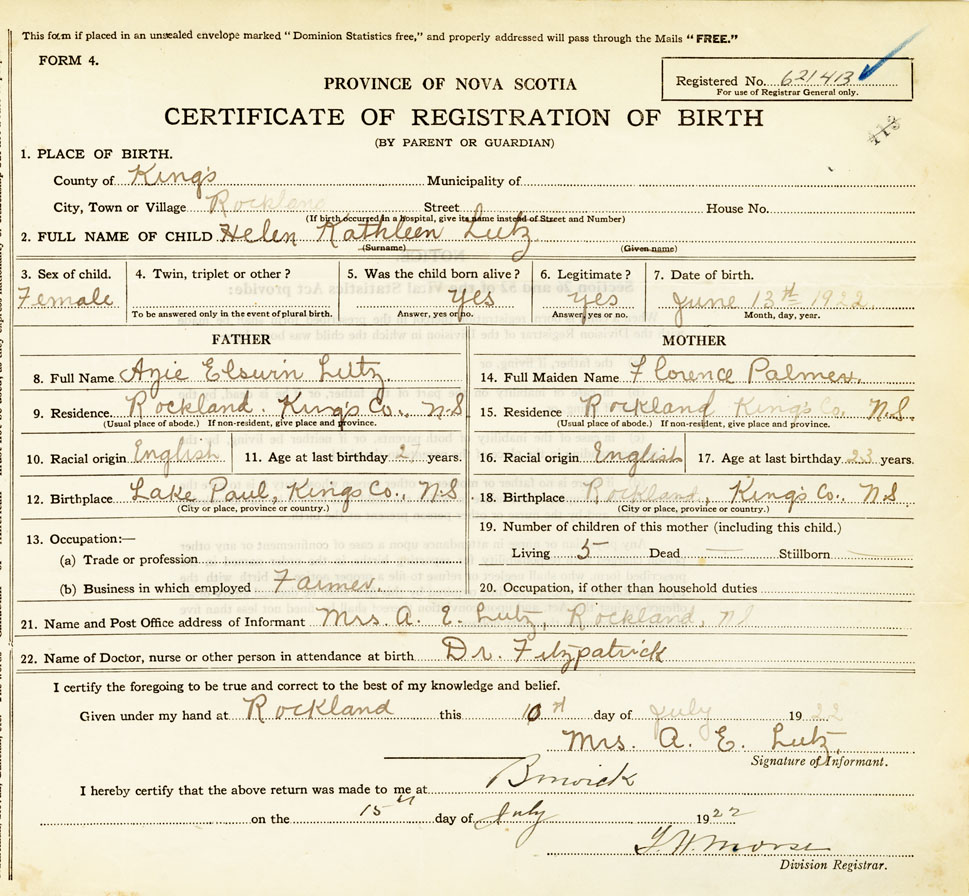 This form if placed in an unsealed envelope marked "Dominion Statistics free," and properly addressed will pass through the Mails "FREE."
FORM 4.
Registered No. 6214B
For use of Registrar General only.
PROVINCE OF NOVA SCOTIA
CERTIFICATE OF REGISTRATION OF BIRTH
(BY PARENT OR GUARDIAN)
1. PLACE OF BIRTH.
County of King's Municipality of
City, Town or Village Rockland Street House No.
(If birth occurred in a hospital, give its name instead of Street and Number)
2. FULL NAME OF CHILD Helen Kathleen Lutz
(Surname) (Given name)
3. Sex of child. 4. Twin, triplet or other? 5. Was the child born alive? 6. Legitimate? 7. Date of birth.
Female yes yes June 13th 1922
To be answered only in the event of plural birth. Answer, yes or no. Answer, yes or no. Month, day, year.
FATHER MOTHER
8. Full Name Azie Elswin Lutz 14. Full Maiden Name Florence Palmer.
9. Residence. Rockland. King's Co., N.S 15. Residence Rockland King's Co. N.S.
(Usual place of abode.) If non-resident, give place and province. (Usual place of abode.) If non-resident, give place and province.
10. Racial origin English 11. Age at last birthday 27 years. 16. Racial origin English 17. Age at last birthday 23 years.
12. Birthplace Lake Paul, Kings Co., N.S 18. Birthplace Rockland, King's Co. N.S
(City or place, province or country.) (City or place, province or country.)
13. Occupation:— 19. Number of children of this mother (including this child.)
(a) Trade or profession Living 5 Dead — Stillborn —
(b) Business in which employed Farmer. 20. Occupation, if other than household duties
21. Name and Post Office address of Informant Mrs. A. E. Lutz, Rockland, NS
22. Name of Doctor, nurse or other person in attendance at birth Dr. Fitzpatrick
I certify the foregoing to be true and correct to the best of my knowledge and belief.
Given under my hand at Rockland this 10 day of July 1922
Mrs. A. E. Lutz,
Signature of Informant.
I hereby certify that the above return was made to me at Berwick
on the 15th day of July 1922
Morse
Division Registrar.